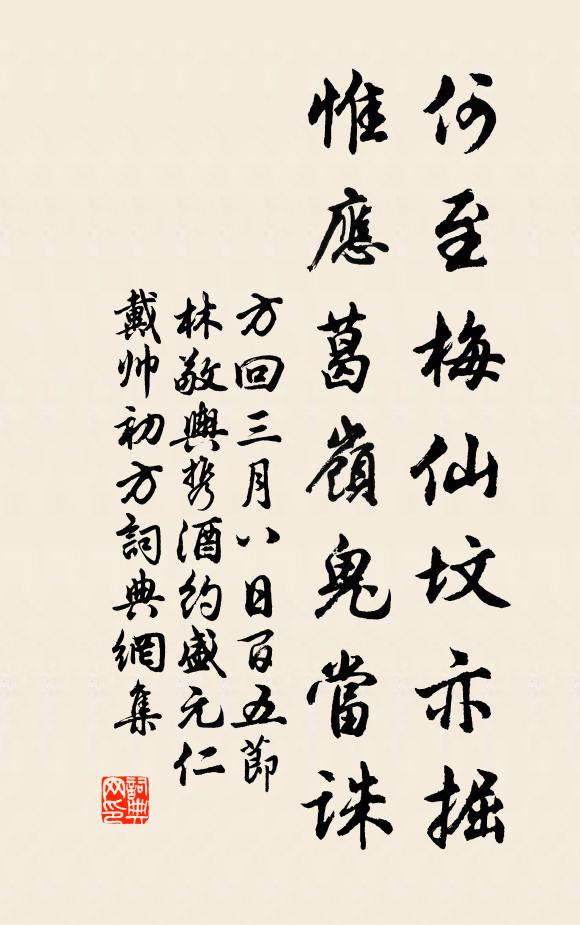 何至梅仙坟亦掘
惟應葛嶺鬼當誅
方回三月八日百五節
林敬輿携酒約盛元仁
戴帅初方詞典網集
詞典网印